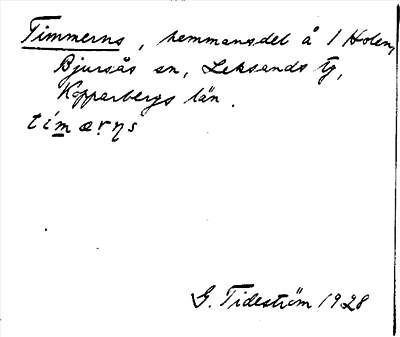 Timmerns, hemmansdel å 1 Holen,
Bjursås sn, Leksands tg,
Kopparbergs län.
timærns
G. Tideström 1928